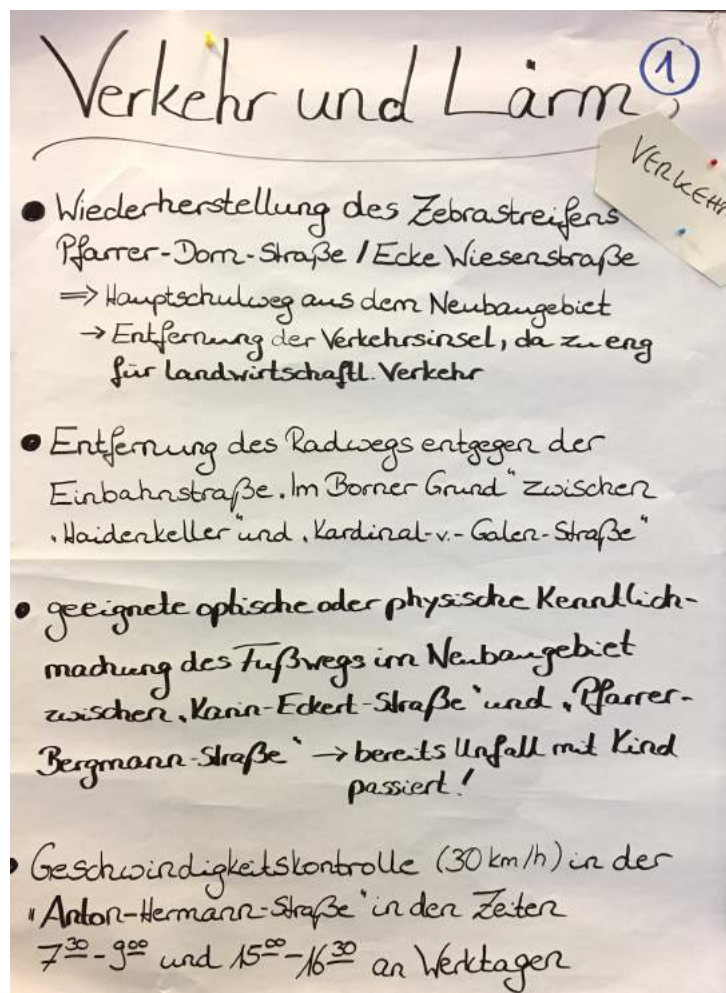 Verkehr und Lärm
1
VERKEHR
● Wiederherstellung des Zebrastreifens
Pfarrer-Dorn-Straße / Ecke Wiesenstraße
⇒ Hauptschulweg aus dem Neubaugebiet
→ Entfernung der Verkehrsinsel, da zu eng
für landwirtschaftl. Verkehr
● Entfernung des Radwegs entgegen der
Einbahnstraße „Im Borner Grund" zwischen
„Haidenkeller" und „Kardinal-v.-Galen-Straße"
● geeignete optische oder physische Kenntlich-
machung des Fußwegs im Neubaugebiet
zwischen „Karin-Eckert-Straße" und „Pfarrer-
Bergmann-Straße" → bereits Unfall mit Kind
passiert!
● Geschwindigkeitskontrolle (30 km/h) in der
"Anton-Hermann-Straße" in den Zeiten
7³⁰-9⁰⁰ und 15⁰⁰-16³⁰ an Werktagen